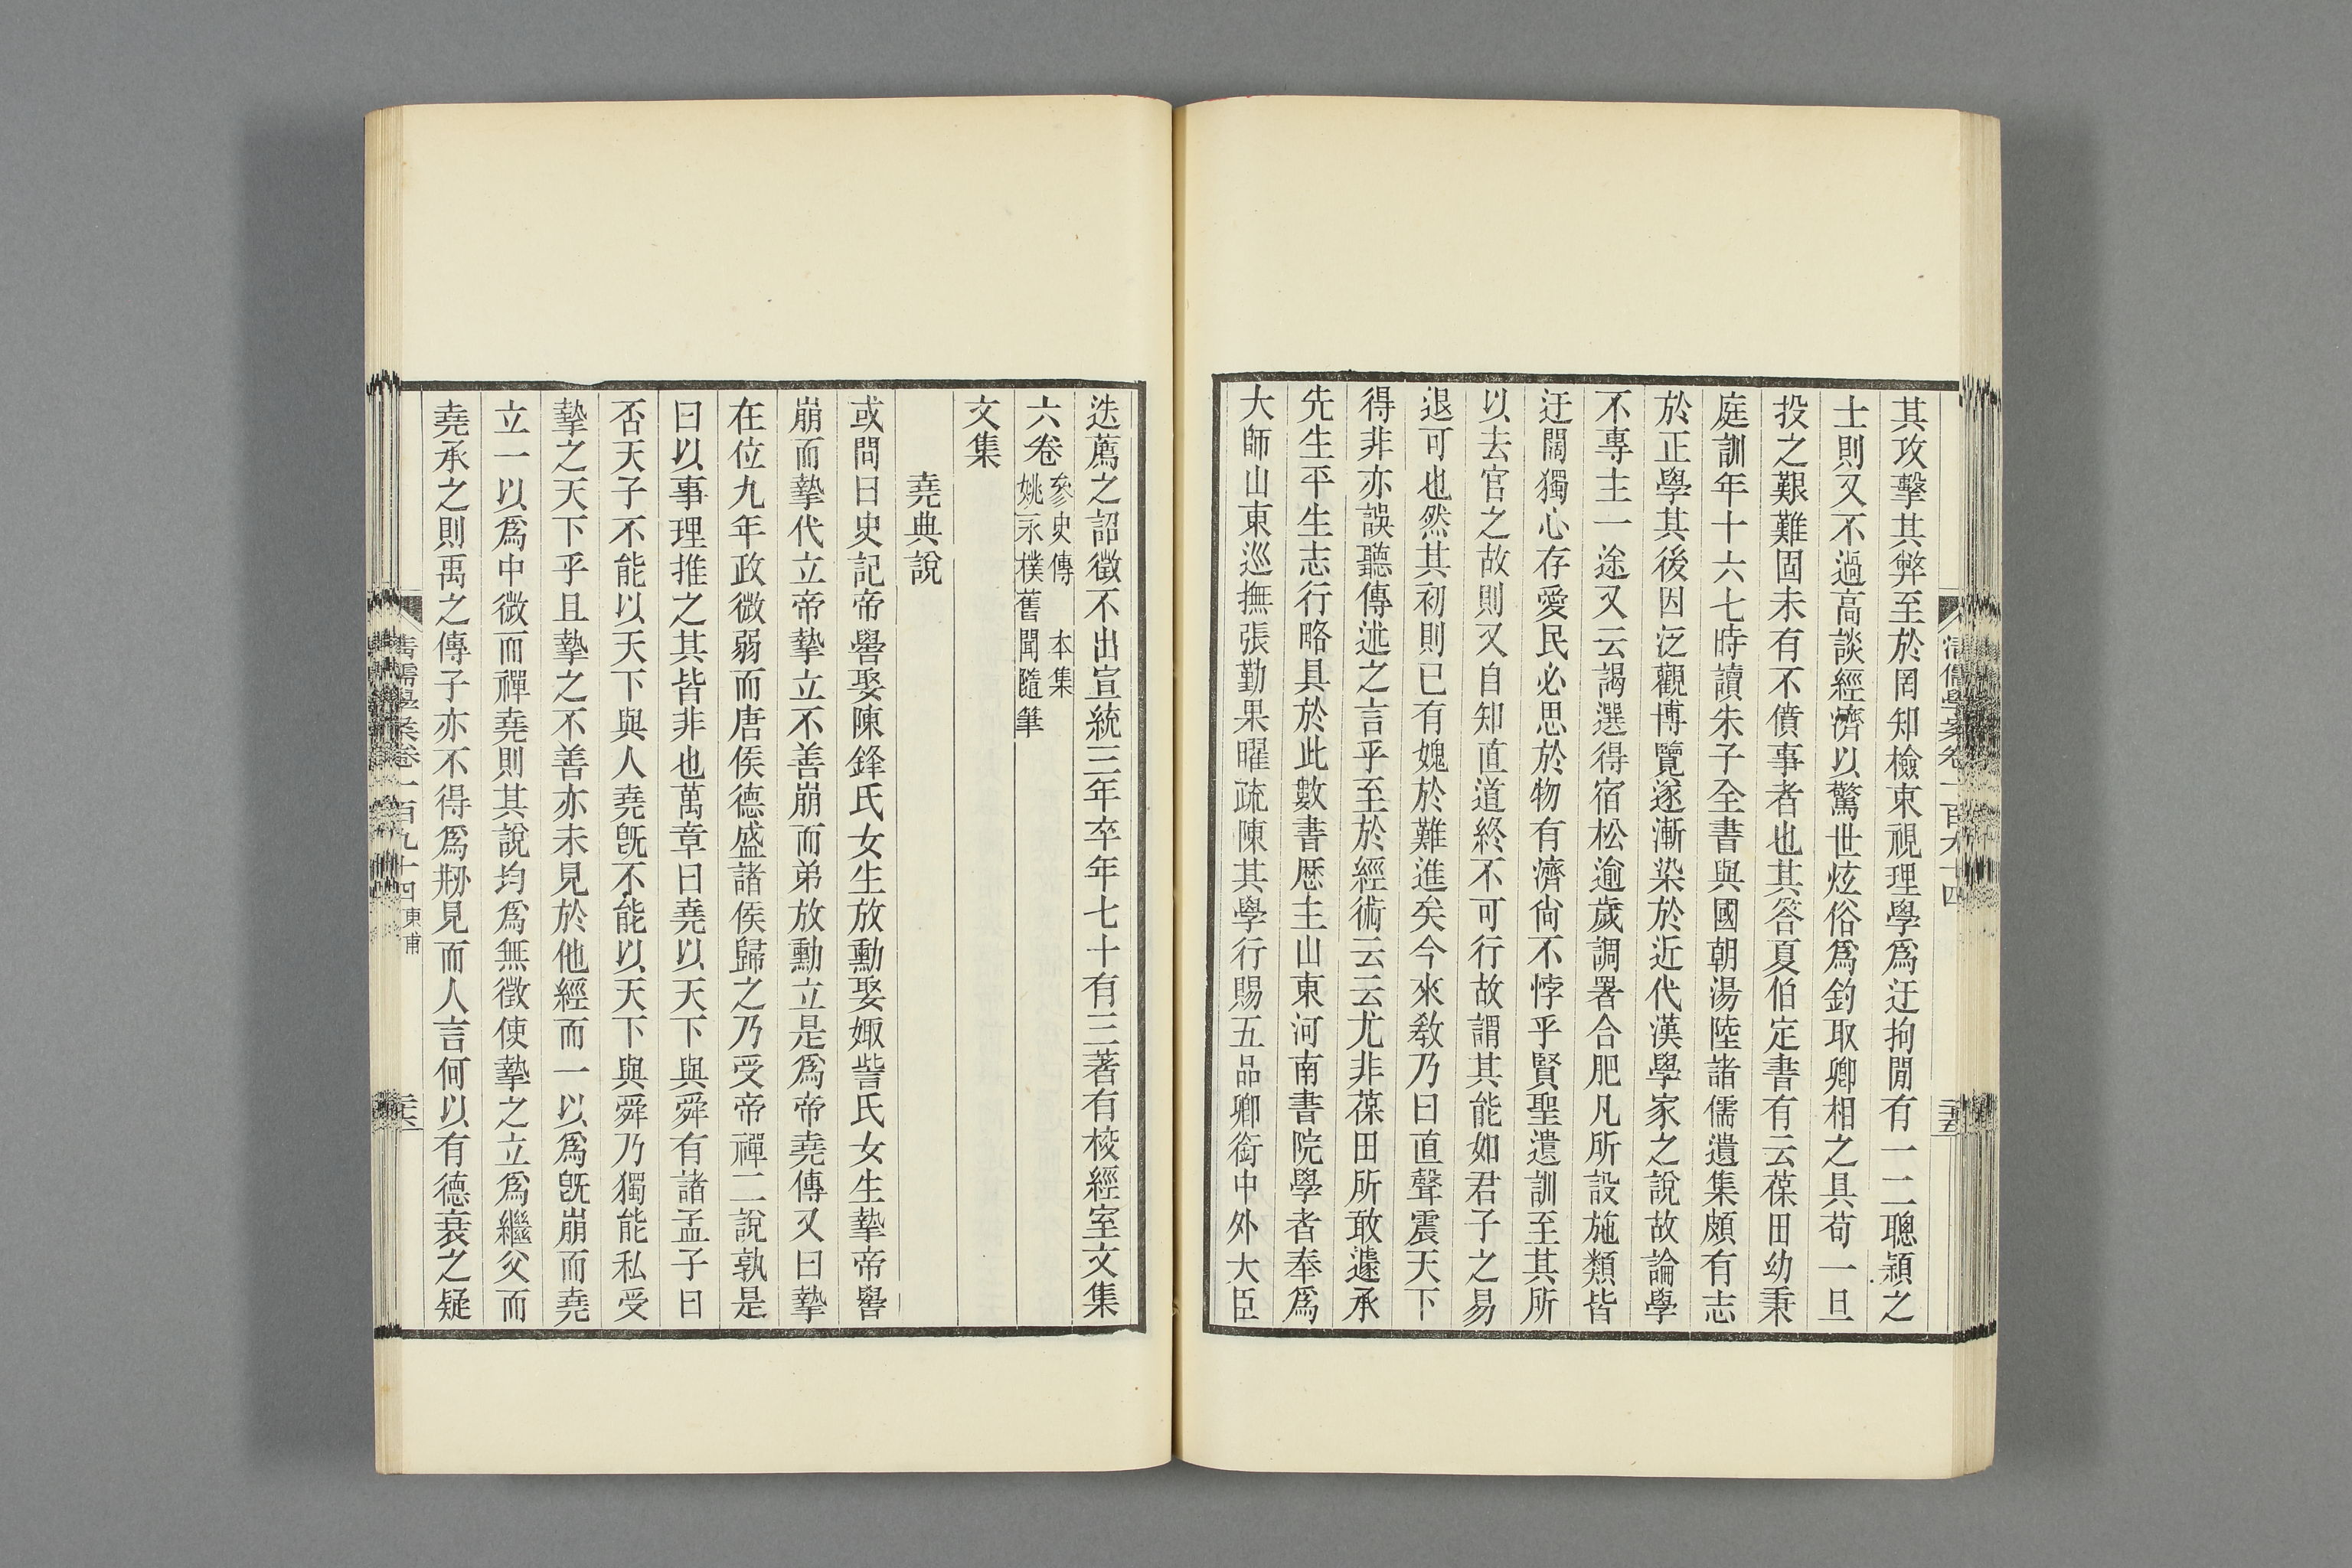 其攻擊其弊至於罔知檢束視理學爲迂拘閒有一二聰潁之
士則又不過高談經濟以驚世炫俗爲釣取卿相之具苟一旦
投之艱難固未有不僨事者也其答夏伯定書有云葆田幼秉
庭訓年十六七時讀朱子全書與國朝湯陸諸儒遺集頗有志
於正學其後因泛觀博覽遂漸染於近代漢學家之說故論學
不專主一途又云謁選得宿松逾歲調署合肥凡所設施類皆
迂闊獨心存愛民必思於物有濟尙不悖乎賢聖遺訓至其所
以去官之故則又自知直道終不可行故謂其能如君子之易
退可也然其初則已有媿於難進矣今來敎乃曰直聲震天下
得非亦誤聽傳述之言乎至於經術云云尤非葆田所敢遽承
先生平生志行略具於此數書歷主山東河南書院學者奉爲
大師山東巡撫張勤果曜疏陳其學行賜五品卿銜中外大臣
清儒學案卷一百九十四
三五
迭薦之詔徵不出宣統三年卒年七十有三著有校經室文集
六卷參史傳 本集
姚永樸舊聞隨筆
文集
堯典說
或問曰史記帝嚳娶陳鋒氏女生放勳娶娵訾氏女生摯帝嚳
崩而摯代立帝摯立不善崩而弟放勳立是爲帝堯傳又曰摯
在位九年政微弱而唐侯德盛諸侯歸之乃受帝禪二說孰是
曰以事理推之其皆非也萬章曰堯以天下與舜有諸孟子曰
否天子不能以天下與人堯旣不能以天下與舜乃獨能私受
摯之天下乎且摯之不善亦未見於他經而一以爲旣崩而堯
立一以爲中微而禪堯則其說均爲無徵使摯之立爲繼父而
堯承之則禹之傳子亦不得爲剏見而人言何以有德衰之疑
清儒學案卷一百九十四 東甫
三六